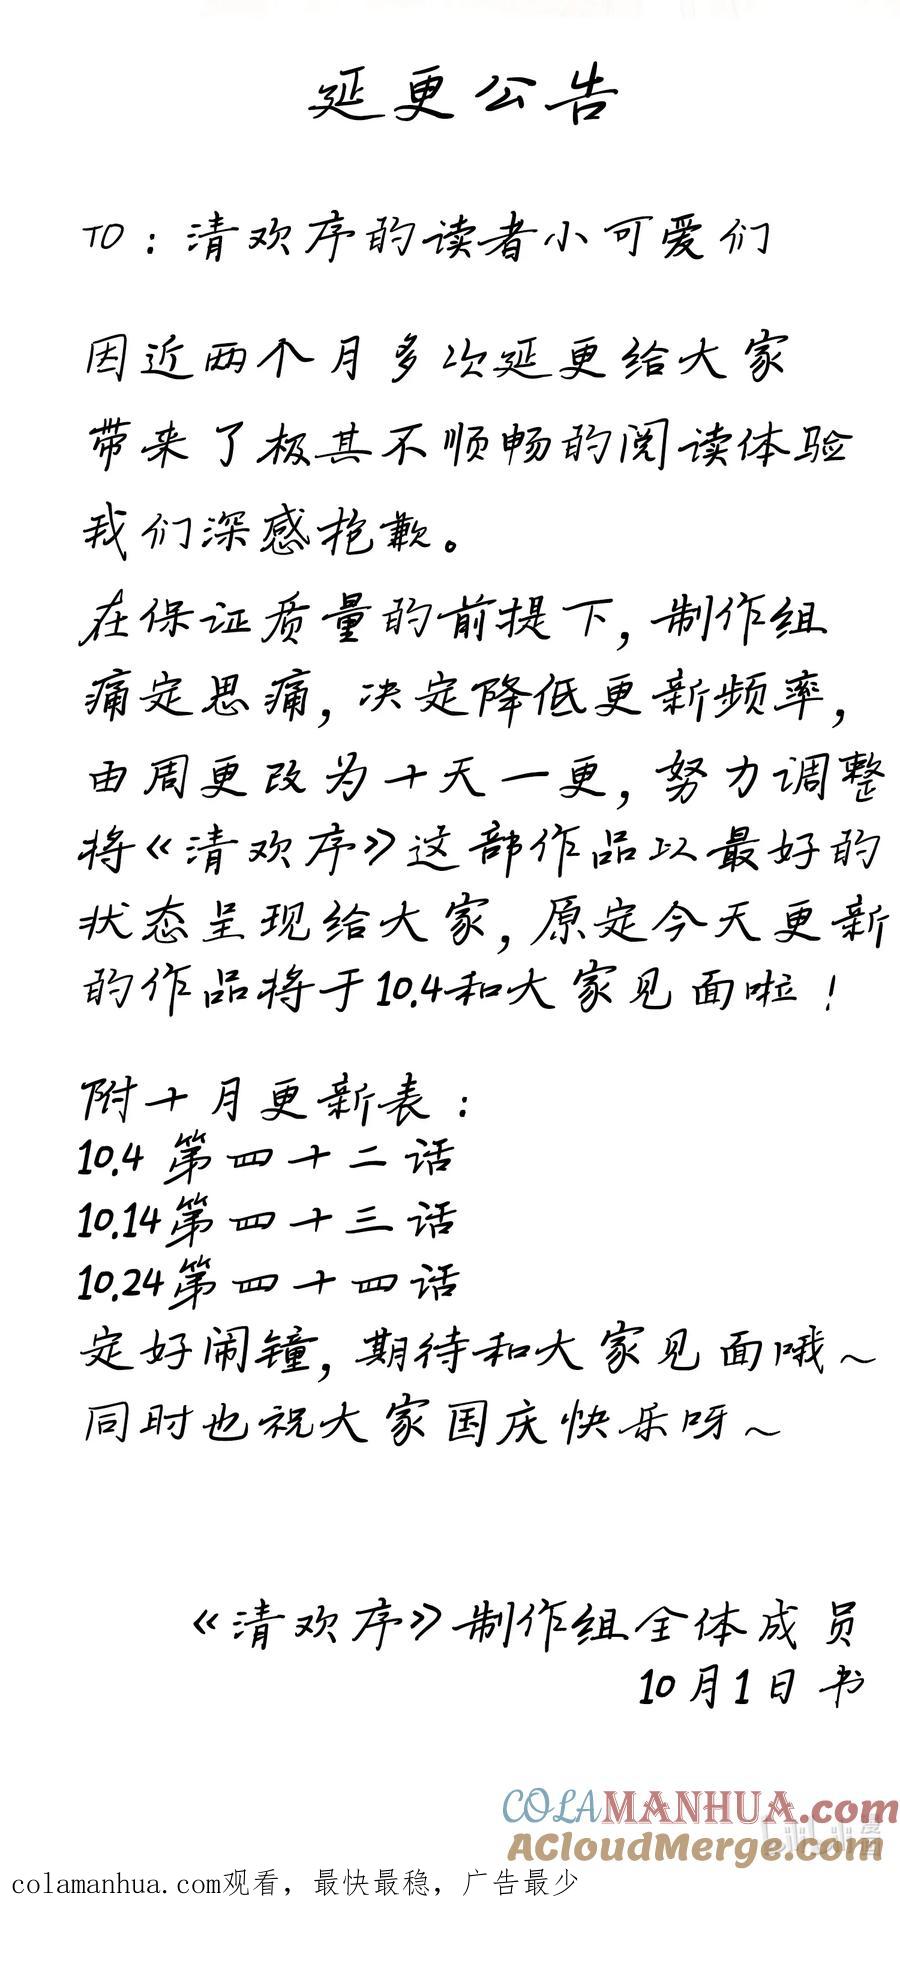 延更公告
TO：清欢序的读者小可爱们
因近两个月多次延更给大家
带来了极其不顺畅的阅读体验
我们深感抱歉。
在保证质量的前提下，制作组
痛定思痛，决定降低更新频率，
由周更改为十天一更，努力调整
将《清欢序》这部作品以最好的
状态呈现给大家，原定今天更新
的作品将于10.4和大家见面啦！
附十月更新表：
10.4 第四十二话
10.14第四十三话
10.24第四十四话
定好闹钟，期待和大家见面哦～
同时也祝大家国庆快乐呀～
《清欢序》制作组全体成员
10月1日书
COLAMANHUA.com
ACloudMerge.com
colamanhua.com观看，最快最稳，广告最少